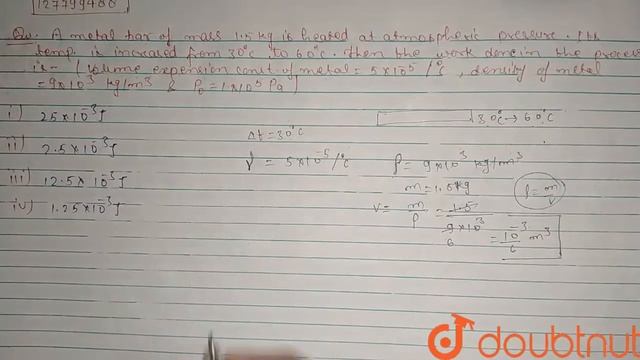 127799480
Qu. A metal bar of mass 1.5 kg is heated at atmospheric pressure. Its
temp. is increased from 30°C to 60°C. Then the work done in the process
is - (volume expension const of metal = 5×10⁵ /°C, density of metal
= 9×10³ kg/m³ & P₀ = 1×10⁵ Pa)
i) 25×10⁻³J
ii) 2.5×10⁻³J
iii) 12.5×10⁻³J
iv) 1.25×10⁻³J
Δt = 30°C
γ = 5×10⁻⁵/°C
30°C → 60°C
ρ = 9×10³ kg/m³
m = 1.5kg
ρ = m/v
V = m/ρ = 1.5/9×10³
6
= 10⁻³/6 m³
doubtnut